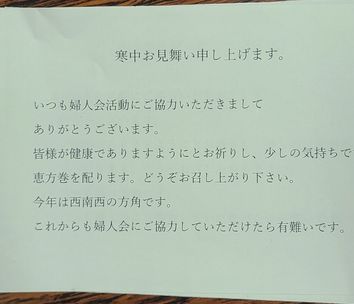 寒中お見舞い申し上げます。
いつも婦人会活動にご協力いただきまして
ありがとうございます。
皆様が健康でありますようにとお祈りし、少しの気持ちで
恵方巻を配ります。どうぞお召し上がり下さい。
今年は西南西の方角です。
これからも婦人会にご協力していただけたら有難いです。